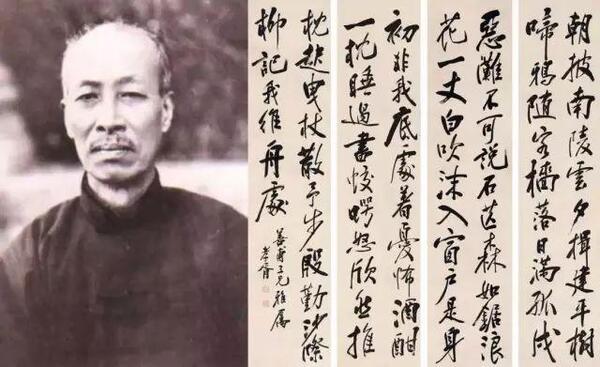 朝披南陵雲夕揖建平樹
啼鴉隨客檣落日滿孤戍
惡灘不可說石芒森如鋸浪
花一丈白吹沫入窗戶是身
初非我底處着憂怖酒酣
一枕睡過盡蛟鰐怒欣然推
枕起曳杖散予步殷勤沙際
柳記我維舟處
兄雅屬
孝胥